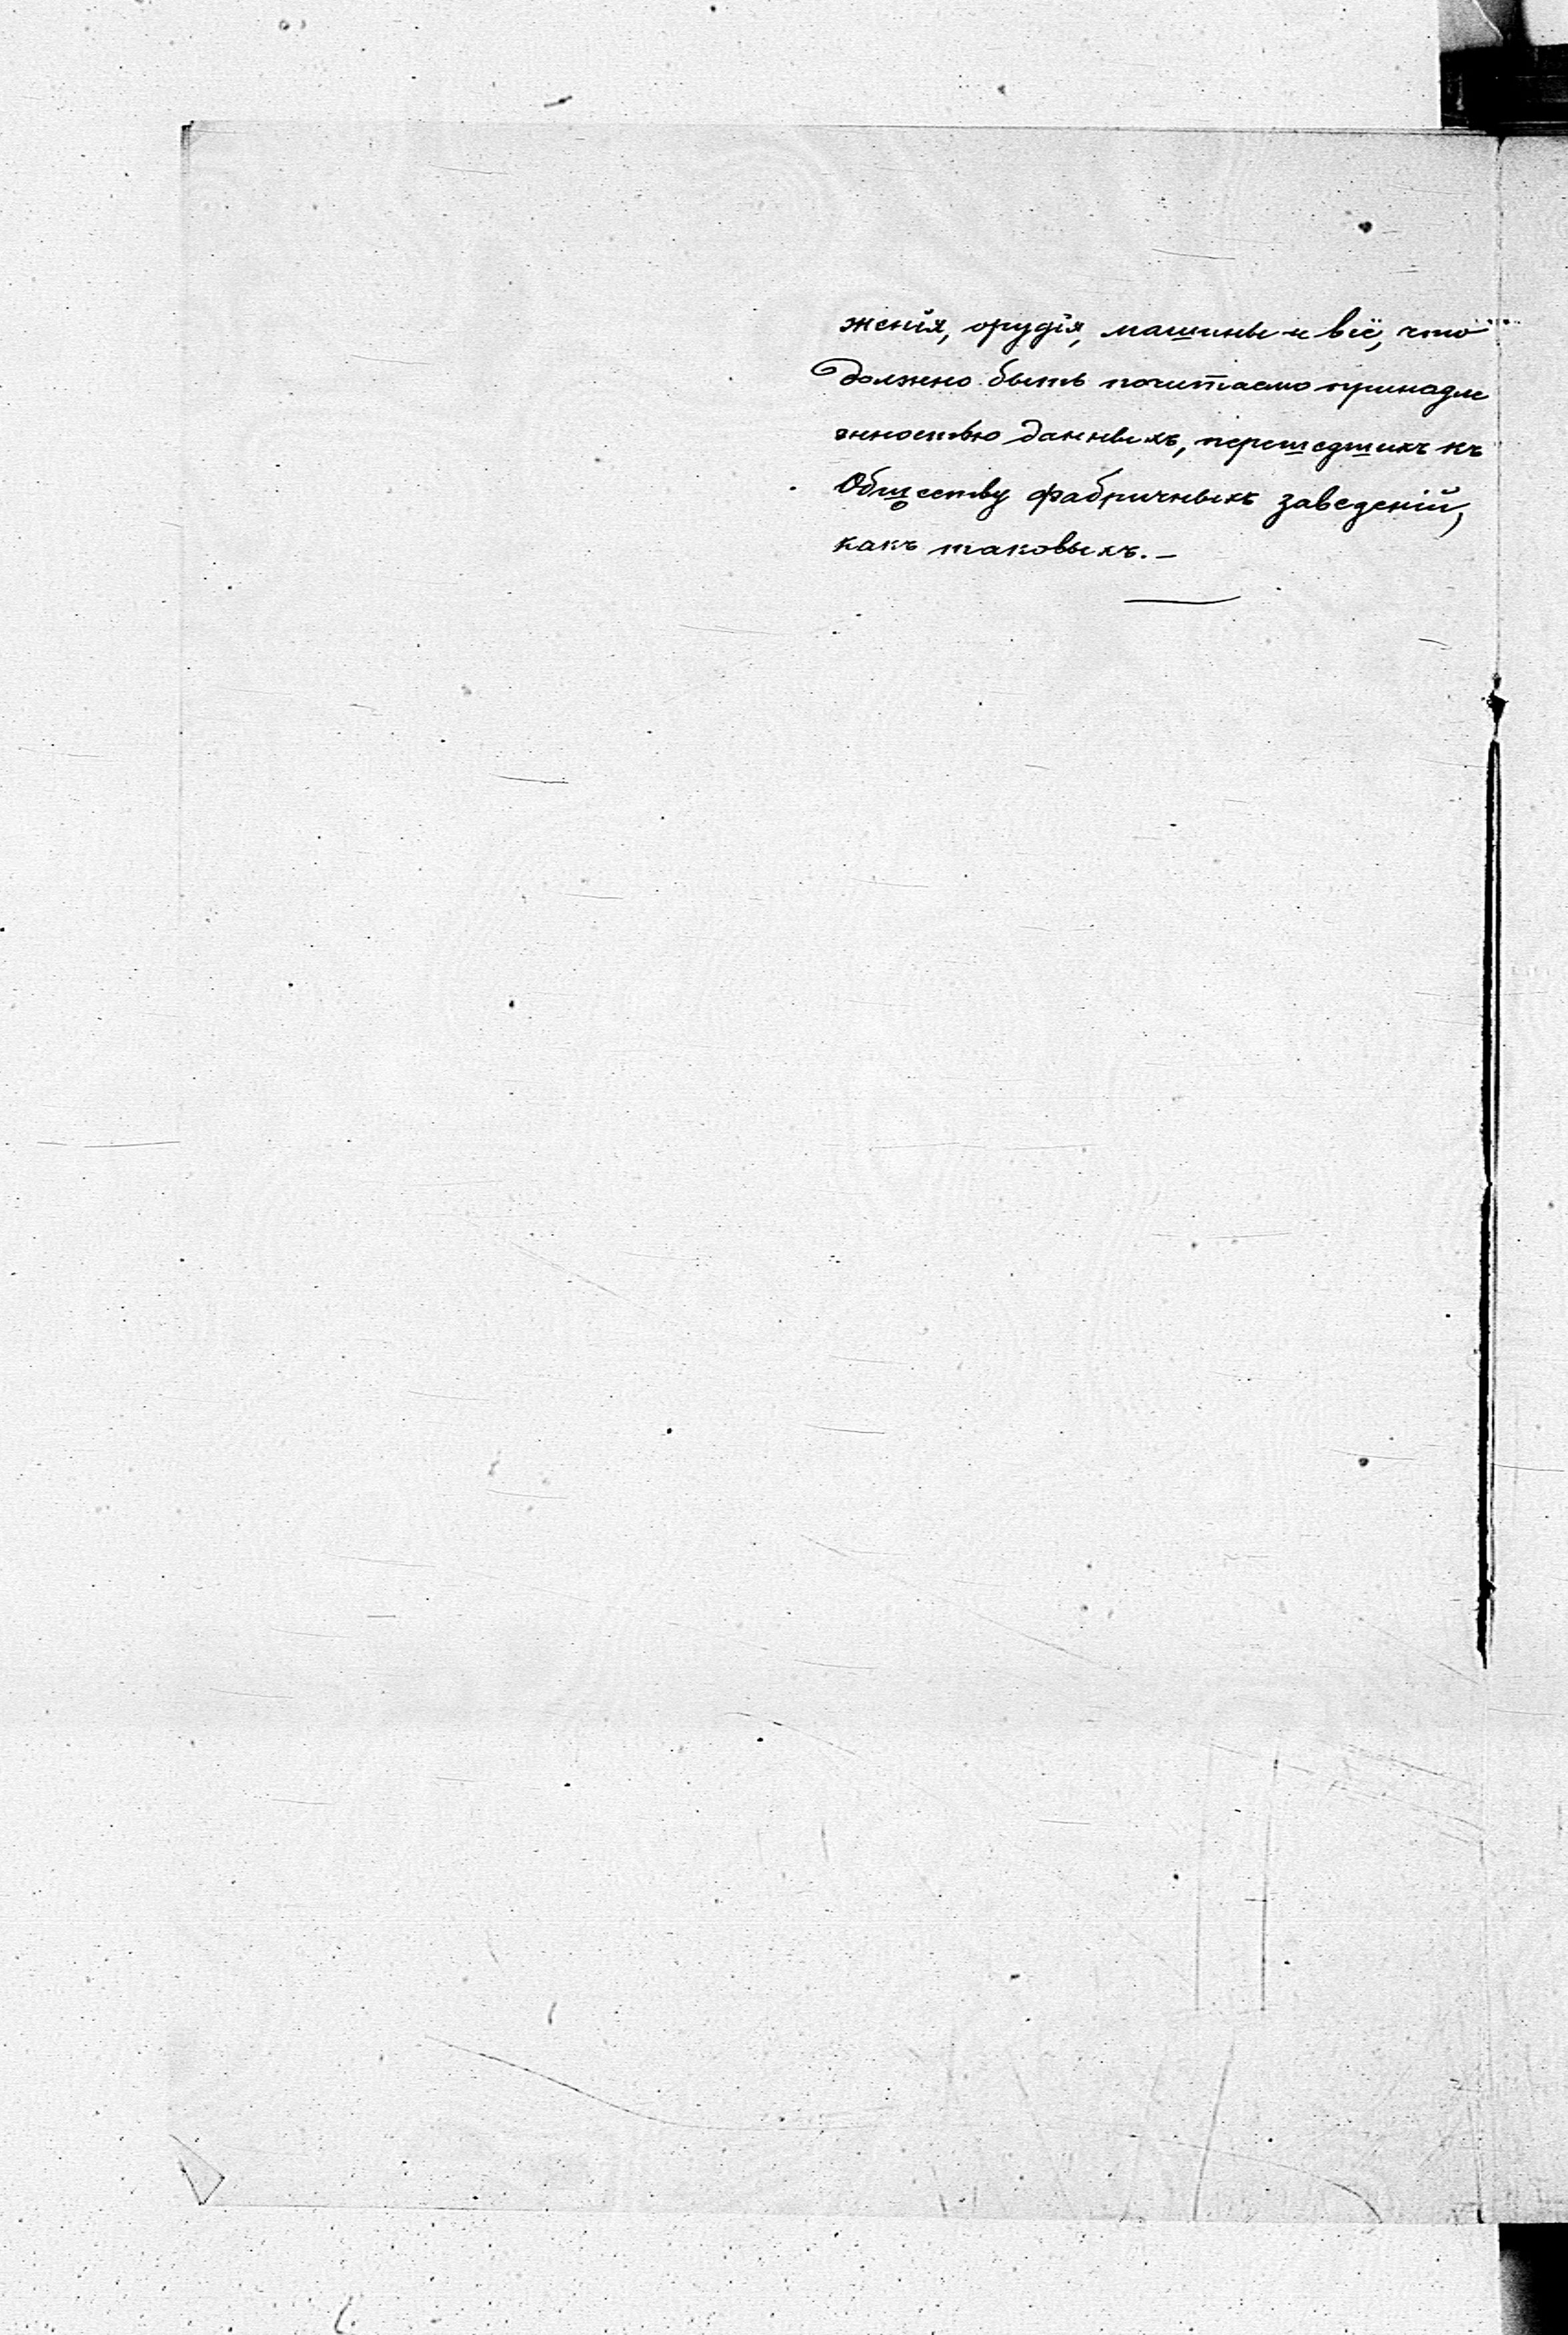 женія, орудія, машины и всё, что
должно быть почитаемо принадле
жностью данныхъ, перешедшихъ къ
Обществу фабричныхъ заведеній,
какъ таковыхъ. —